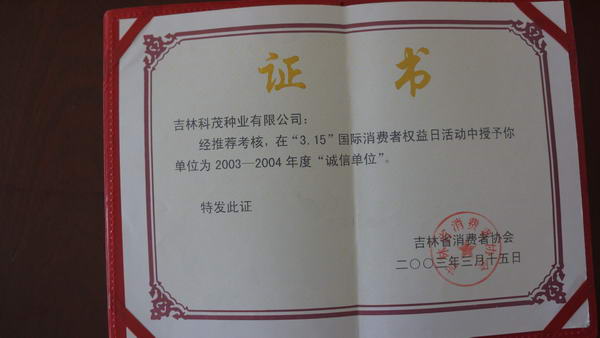 证书
吉林科茂种业有限公司：
经推荐考核，在“3.15”国际消费者权益日活动中授予你
单位为2003—2004年度“诚信单位”。
特发此证
吉林省消费者协会
二〇〇三年三月十五日
吉林省消费者协会